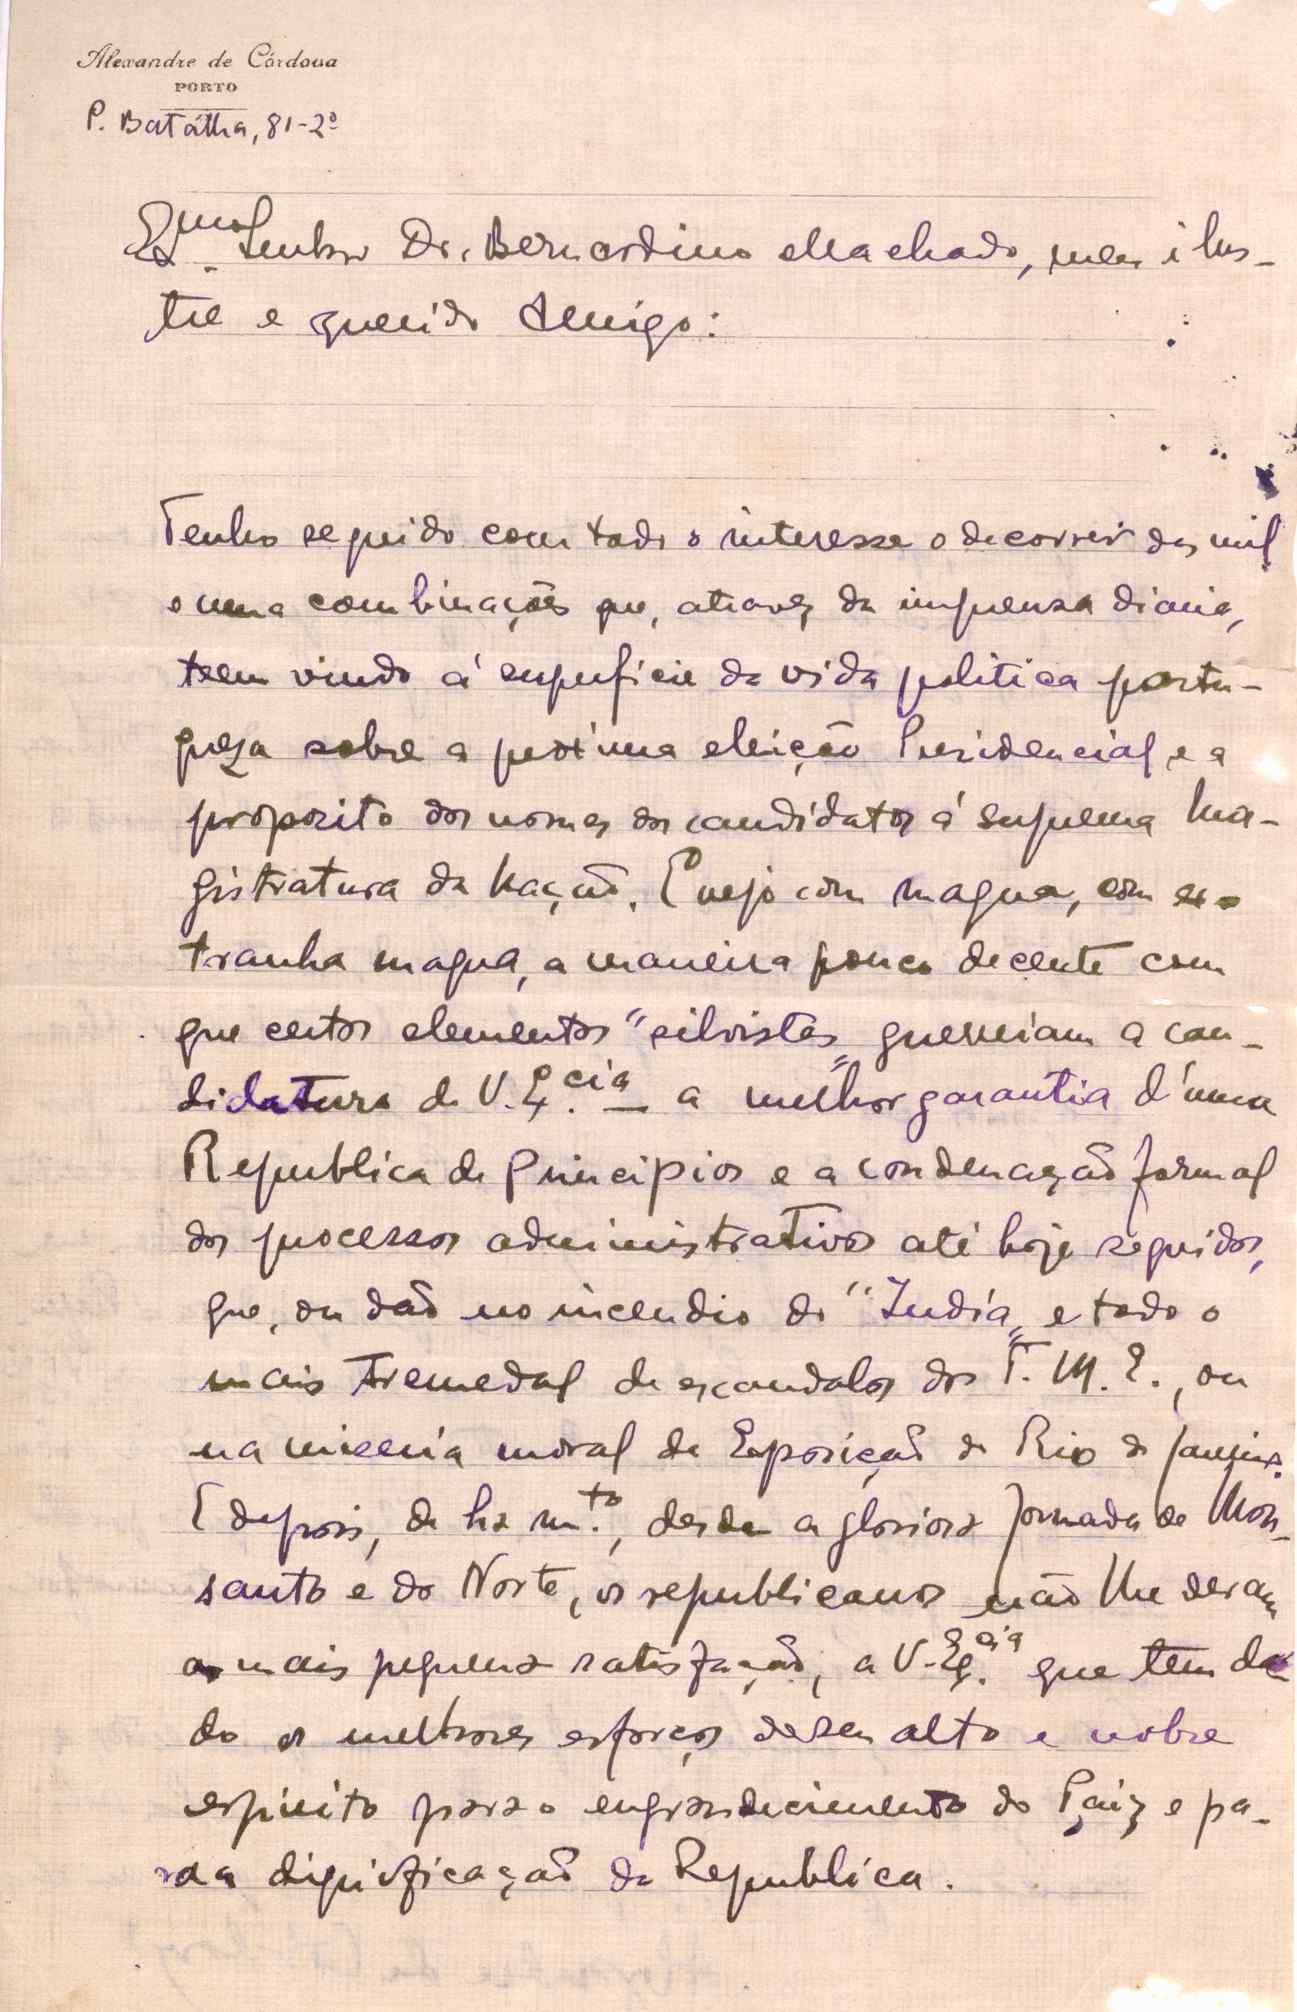 Alexandre de Córdova
PORTO
P. Batalha, 81-2º
Exmo. Senhor Dr. Bernardino Machado, meu ilus-
tre e querido Amigo:
Tenho seguido com todo o interesse o decorrer das mil
e uma combinações que, atravez da imprensa diaria,
teem vindo á superficie da vida politica portu-
gueza sobre a proxima eleição Presidencial, e a
proposito dos nomes dos candidatos á suprema Ma-
gistratura da Nação. E vejo com magua, com es-
tranha magua, a maneira pouco decente com
que certos elementos "silvistas" guerreiam a can-
didatura de V. Ex.cia — a melhor garantia d'uma
Republica de Principios e a condenação formal
dos processos administrativos até hoje seguidos,
que, ou dão no incendio do "India" e todo o
mais tremedal de escandalos dos T. M. E., ou
na miseria moral da Exposição do Rio de Janeiro.
E depois, de ha m.to, desde a gloriosa Jornada de Mon-
santo e do Norte, os republicanos não lhe deram
a mais pequena satisfação, a V. Ex.cia que tem da-
do os melhores esforços do seu alto e nobre
espirito para o engrandecimento do Paiz e pa-
ra a dignificação da Republica.